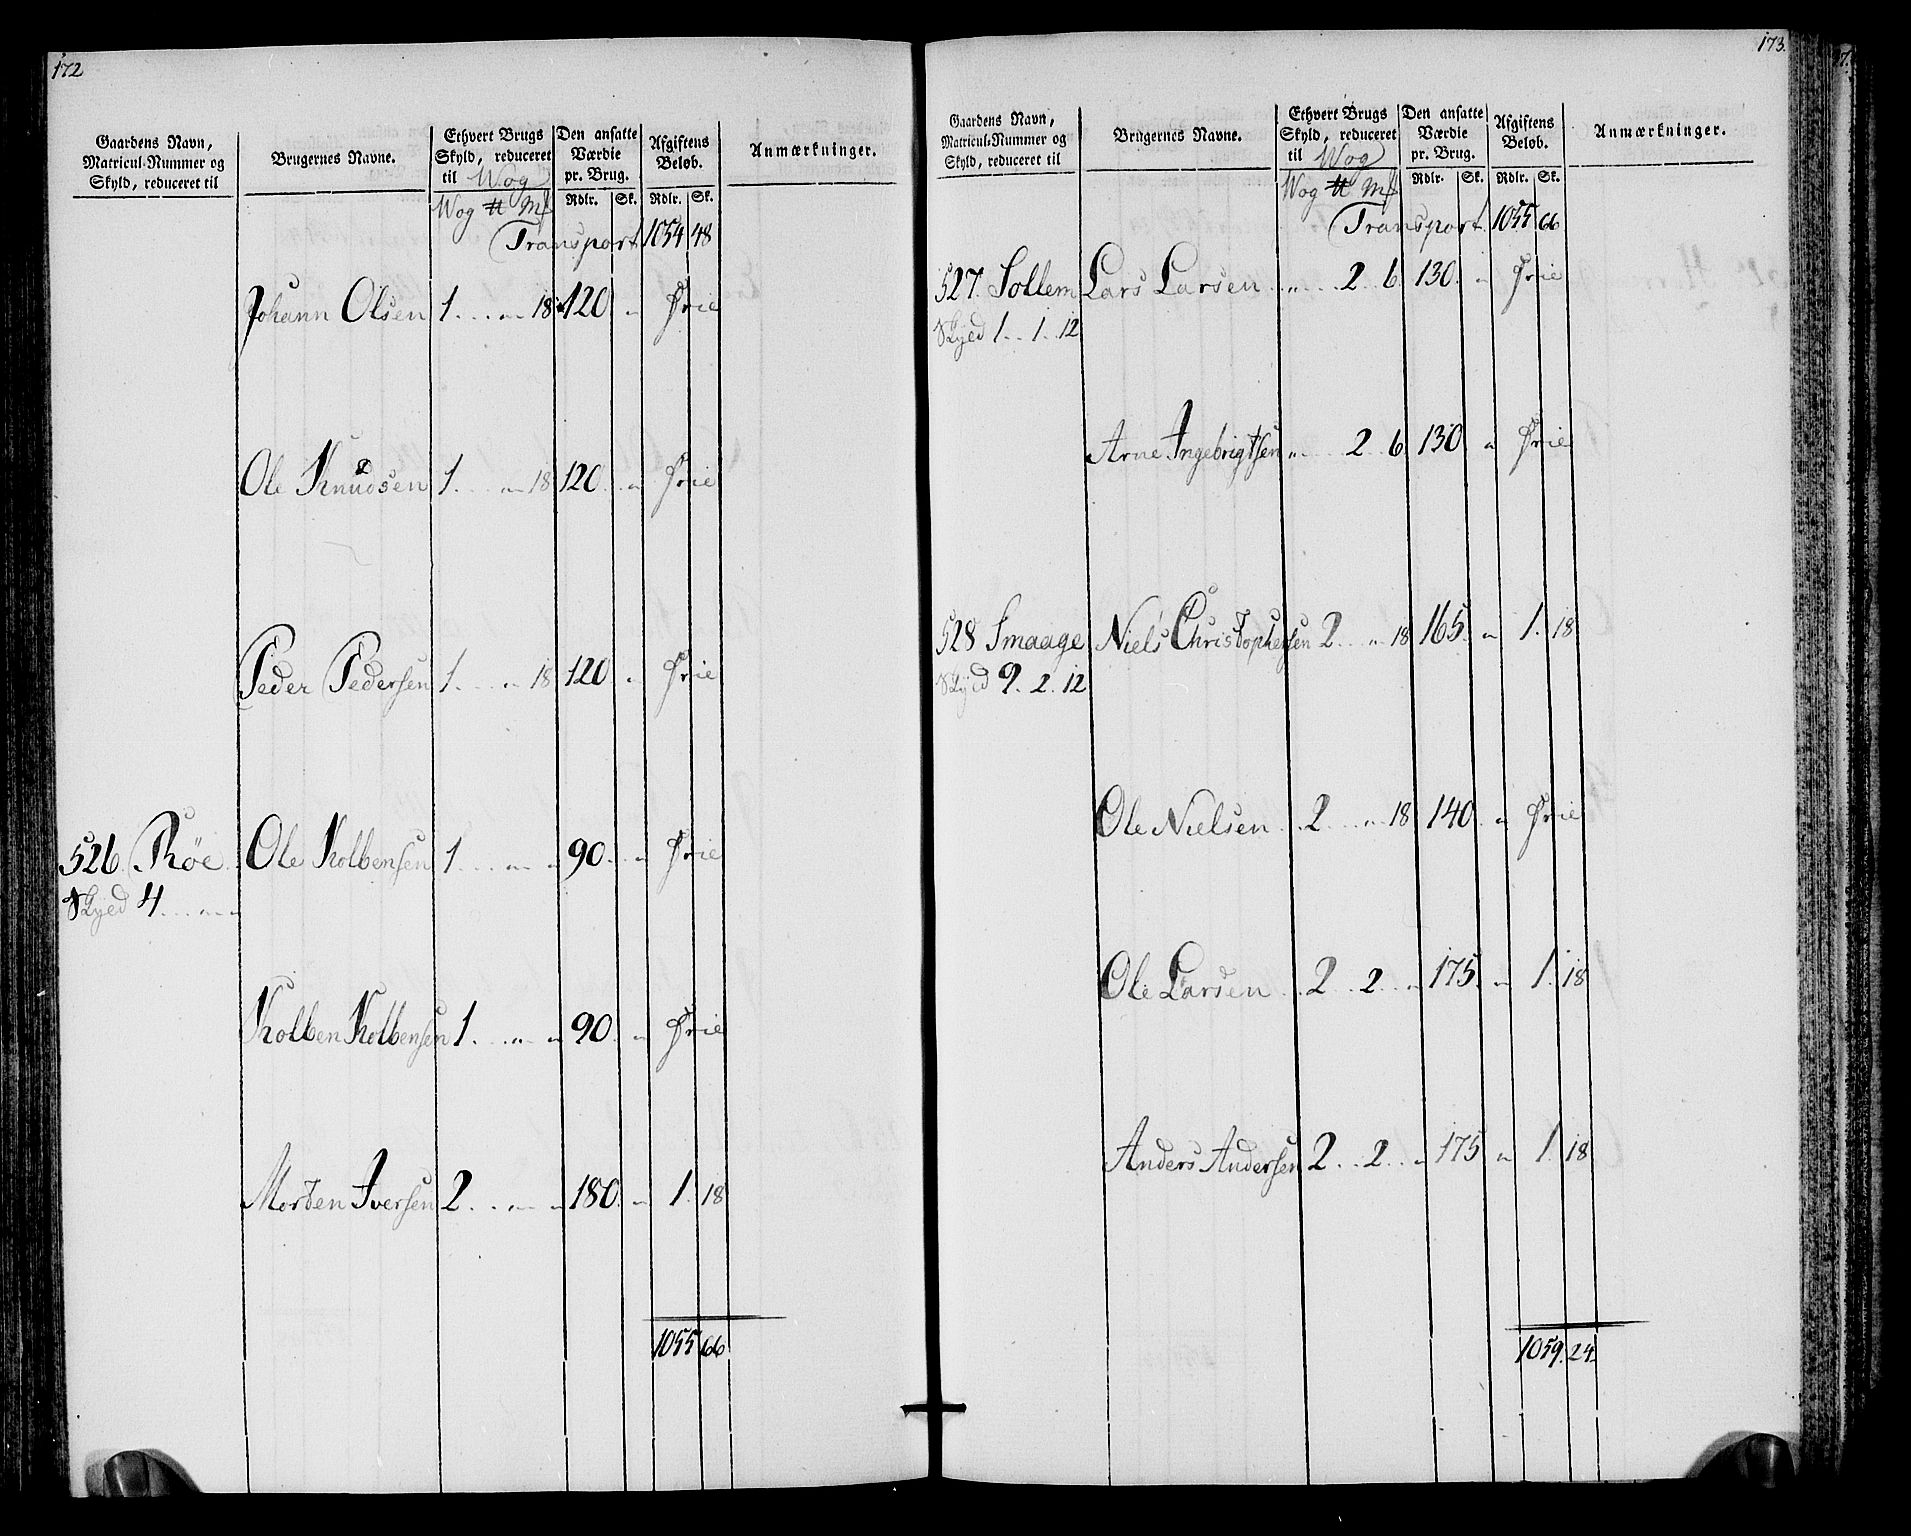 172
Gaardens Navn, Matricul-Nummer og Skyld, reduceret til
Brugernes Navne.
Ethvert Brugs Skyld, reduceret til Wog
Den ansatte Værdie pr. Brug.
Afgiftens Beløb.
Anmærkninger.
Wog ℔ Mk Rdlr. Sk. Rdlr. Sk.
Transport 1054 48
Johann Olsen 1 . . . „ 18 120 „ Frie
Ole Knudsen 1 . . . „ 18 120 . „ Frie
Peder Pedersen 1 . . . „ 18 120 „ Frie
526 Røe Ole Kolbensen 1 . . . „ „ 90 . „ Frie
Skyld 4 . . . „ „
Kolben Kolbensen 1 . . „ „ 90 . „ Frie
Morten Iversen 2 . . „ „ 180 . „ 1. 18
1055 66
173.
Gaardens Navn, Matricul-Nummer og Skyld, reduceret til
Brugernes Navne.
Ethvert Brugs Skyld, reduceret til Wog
Den ansatte Værdie pr. Brug.
Afgiftens Beløb.
Anmærkninger.
Wog ℔ Mk Rdlr. Sk. Rdlr. Sk.
Transport 1055 66
527. Sollem Lars Larsen „ . . 2 . 6 130 . „ Frie
Skyld 1 . . 1 . 12
Arne Ingebrigtsen „ . . 2 . 6 130 „ Frie
528 Smaage Niels Christophersen 2 . . „ 18 165 . „ 1. 18
Skyld 9 . 2 . 12
Ole Nielsen . . 2 . . . „ 18 140 . „ Frie
Ole Larsen . . 2 . . 2 . . „ 175 . „ 1. 18
Anders Andersen 2 . . 2 . . „ 175 „ 1. 18
1059. 24.